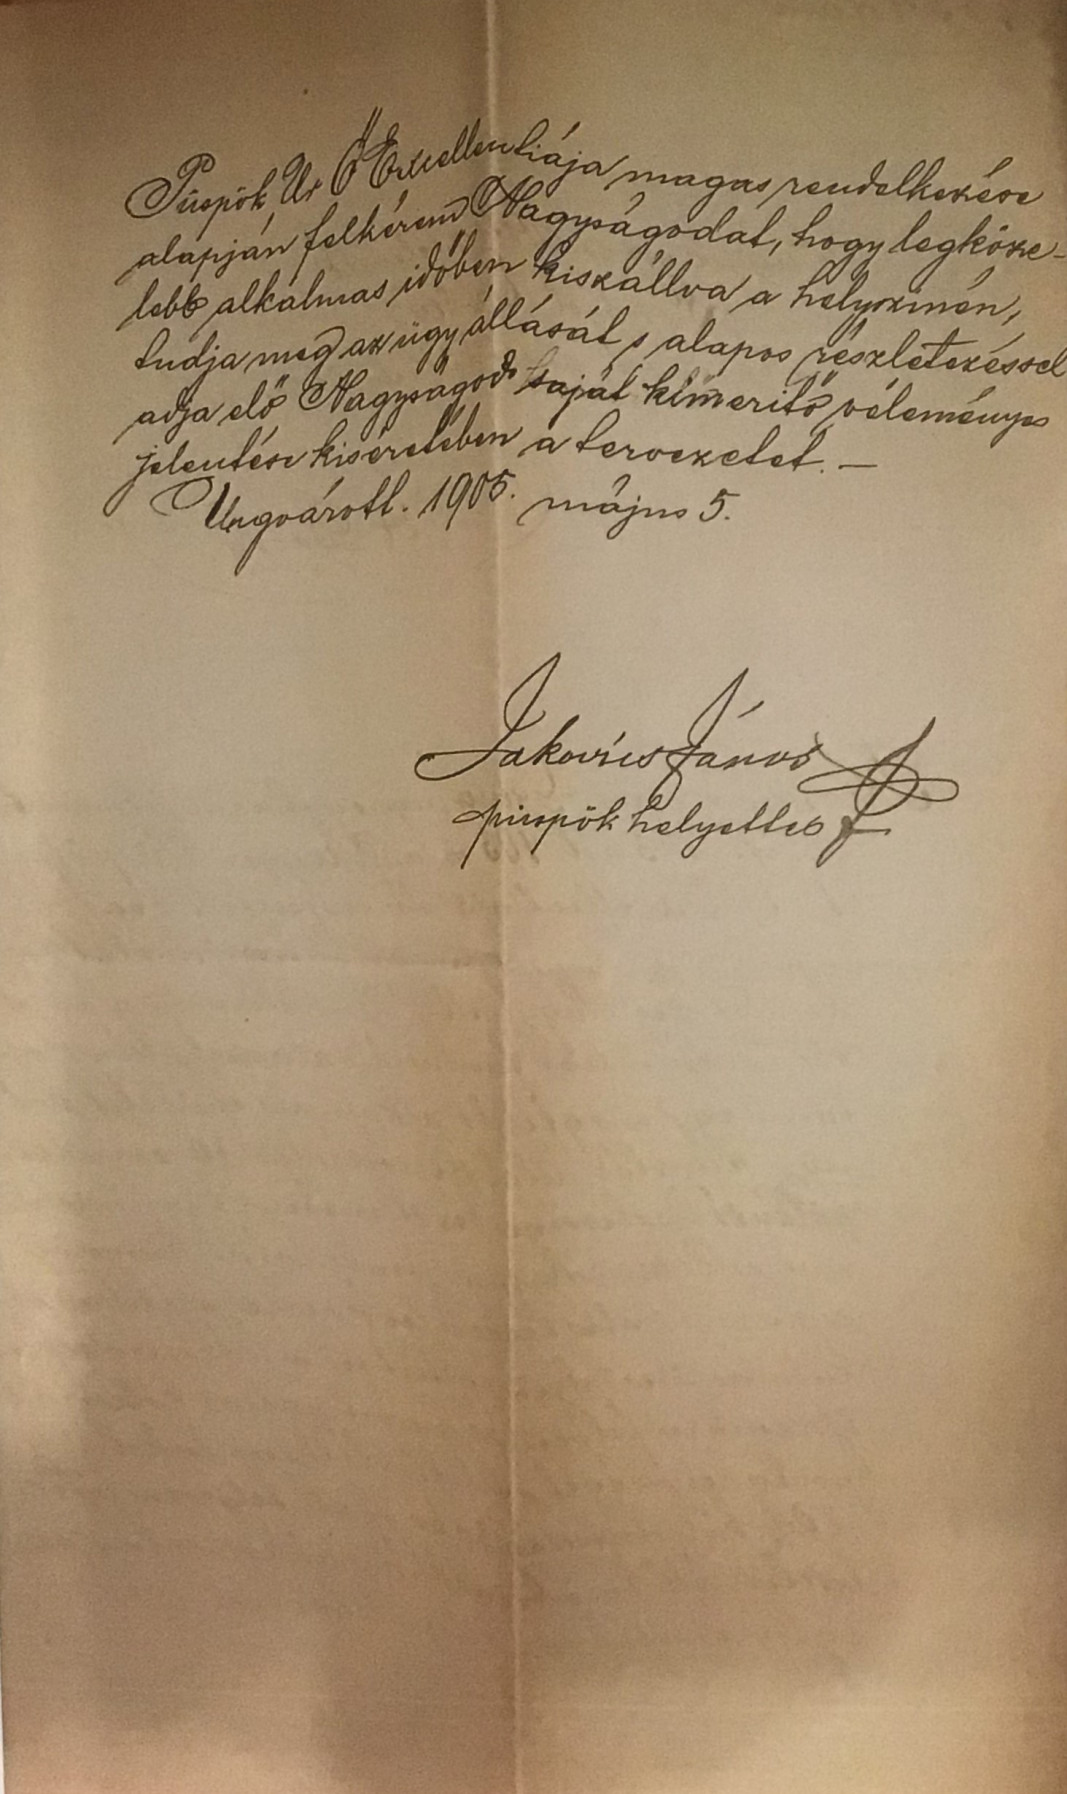 Püspök Úr Ő Excellentiája magas rendelkezése
alapján felkérem Nagyságodat, hogy legköze-
lebb alkalmas időben kiszállva a helyszinén,
tudja meg az ügy állását s alapos részletezéssel
adja elő Nagyságod saját kimeritő véleményes
jelentése kiséretében a tervezetet. —
Ungvárott. 1905. május 5.
Jakovics János
püspök helyettes